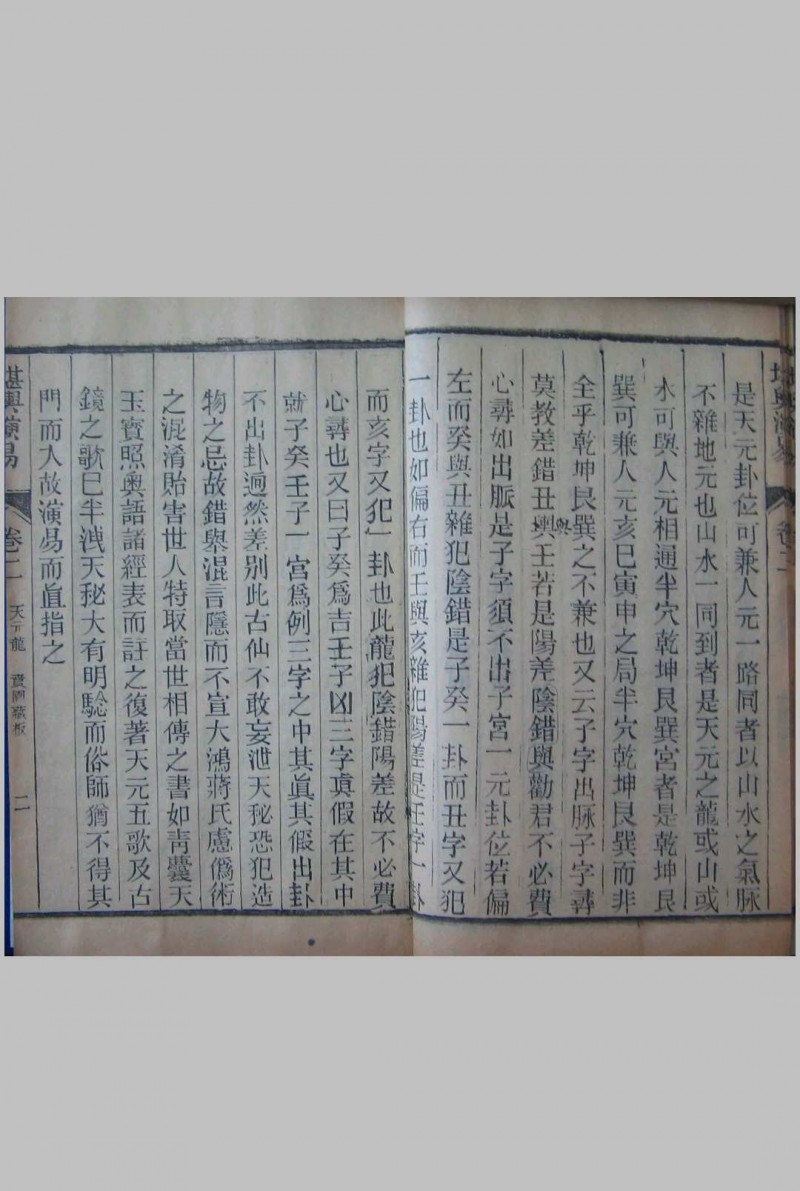 是天元卦位可兼人元一路同者以山水之氣脉
不雜地元也山水一同到者是天元之龍或山或
水可與人元相通半穴乾坤艮巽宮者是乾坤艮
巽可兼人元亥巳寅申之局半穴乾坤艮巽而非
全乎乾坤艮巽之不兼也又云子字出脉子字尋
莫教差錯丑與壬若是陽差陰錯與勸君不必費
心尋如出脈是子字須不出子宮一元卦位若偏
左而癸與丑雜犯陰錯是子癸一卦而丑字又犯
一卦也如偏右而壬與亥雜犯陽差是壬字一卦
而亥字又犯一卦也此龍犯陰錯陽差故不必費
心尋也又曰子癸爲吉壬子凶三字真假在其中
就子癸壬子一宮爲例三字之中其眞其假出卦
不出卦迥然差別此古仙不敢妄泄天秘恐犯造
物之忌故錯舉混言隱而不宣大鴻蔣氏慮僞術
之混淆貽害世人特取當世相傳之書如靑囊天
玉寳照奥語諸經表而註之復著天元五歌及古
鏡之歌巳半洩天秘大有明騐而俗師猶不得其
門而入故演易而直指之
堪輿演易
卷二
天元龍
二